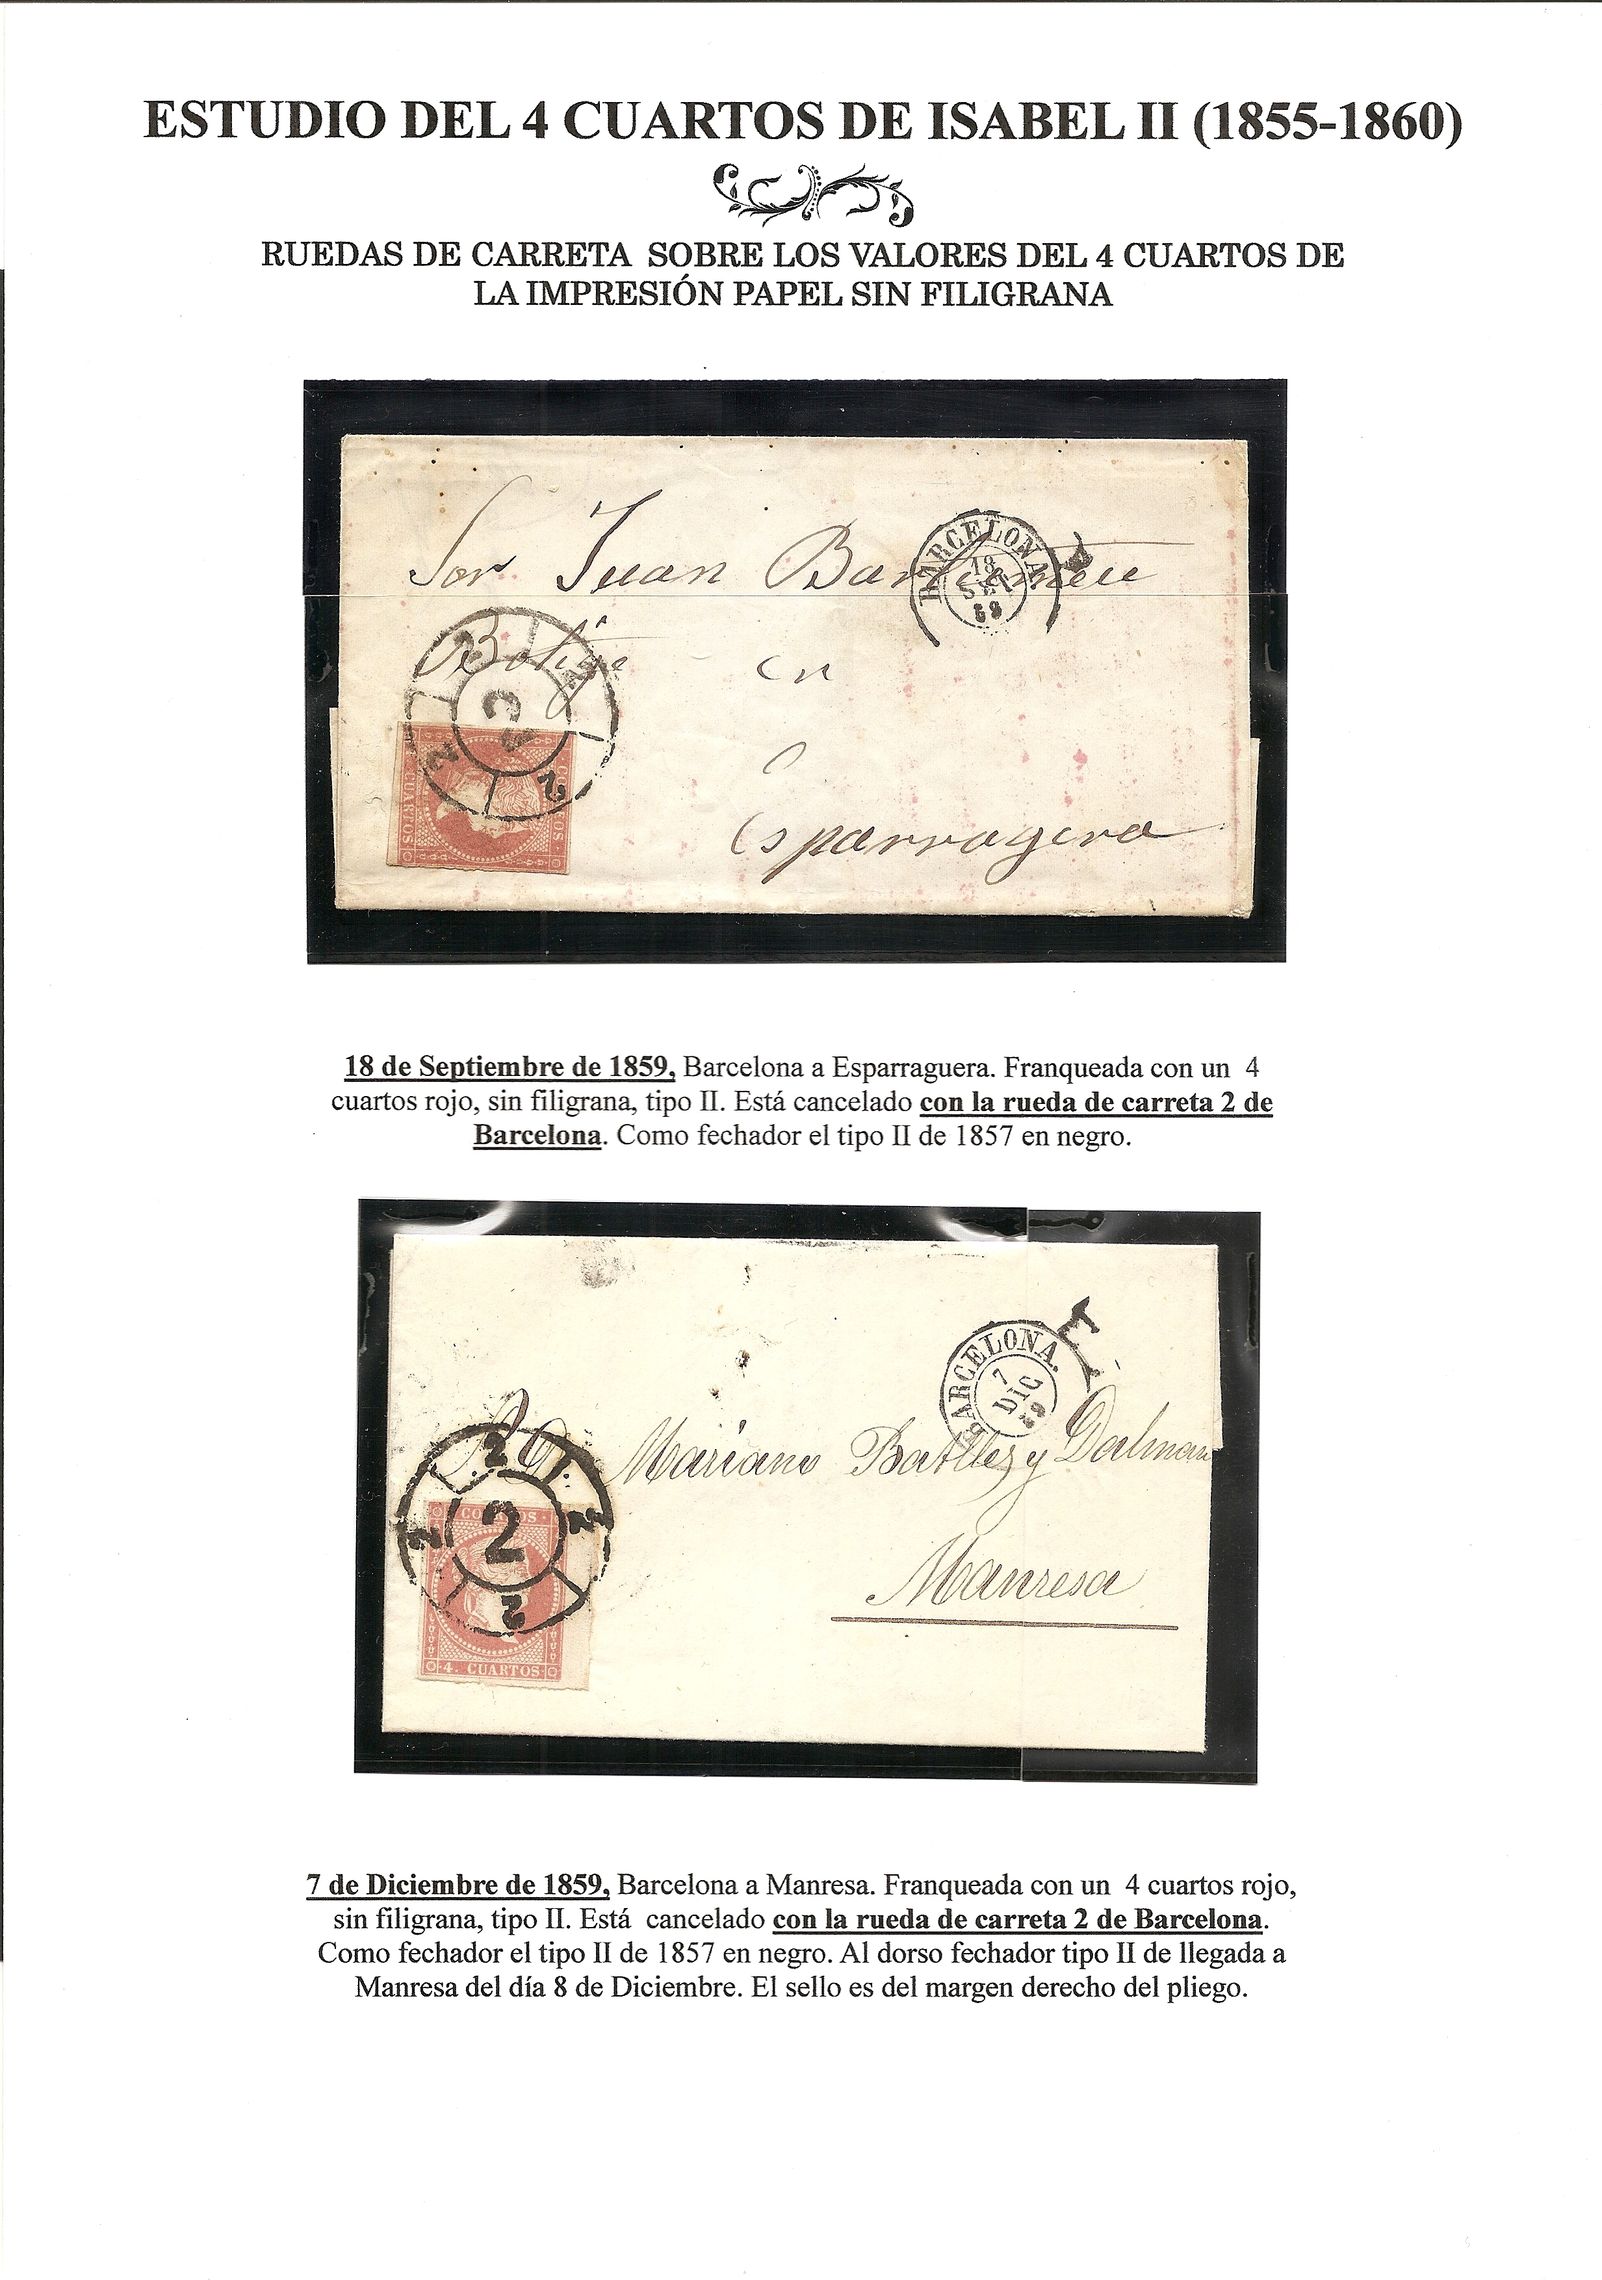 ESTUDIO DEL 4 CUARTOS DE ISABEL II (1855-1860)
RUEDAS DE CARRETA SOBRE LOS VALORES DEL 4 CUARTOS DE
LA IMPRESIÓN PAPEL SIN FILIGRANA
Sor Juan Bartomeu
BARCELONA
18
SET
59
2
2
2
2
2
en
CORREOS
CUARTOS
Esparragera
18 de Septiembre de 1859, Barcelona a Esparraguera. Franqueada con un 4
cuartos rojo, sin filigrana, tipo II. Está cancelado con la rueda de carreta 2 de
Barcelona. Como fechador el tipo II de 1857 en negro.
BARCELONA.
7
DIC
59
Mariano Batlles y Dalmau
2
2
2
2
2
CORREOS
4. CUARTOS
Manresa
7 de Diciembre de 1859, Barcelona a Manresa. Franqueada con un 4 cuartos rojo,
sin filigrana, tipo II. Está cancelado con la rueda de carreta 2 de Barcelona.
Como fechador el tipo II de 1857 en negro. Al dorso fechador tipo II de llegada a
Manresa del día 8 de Diciembre. El sello es del margen derecho del pliego.